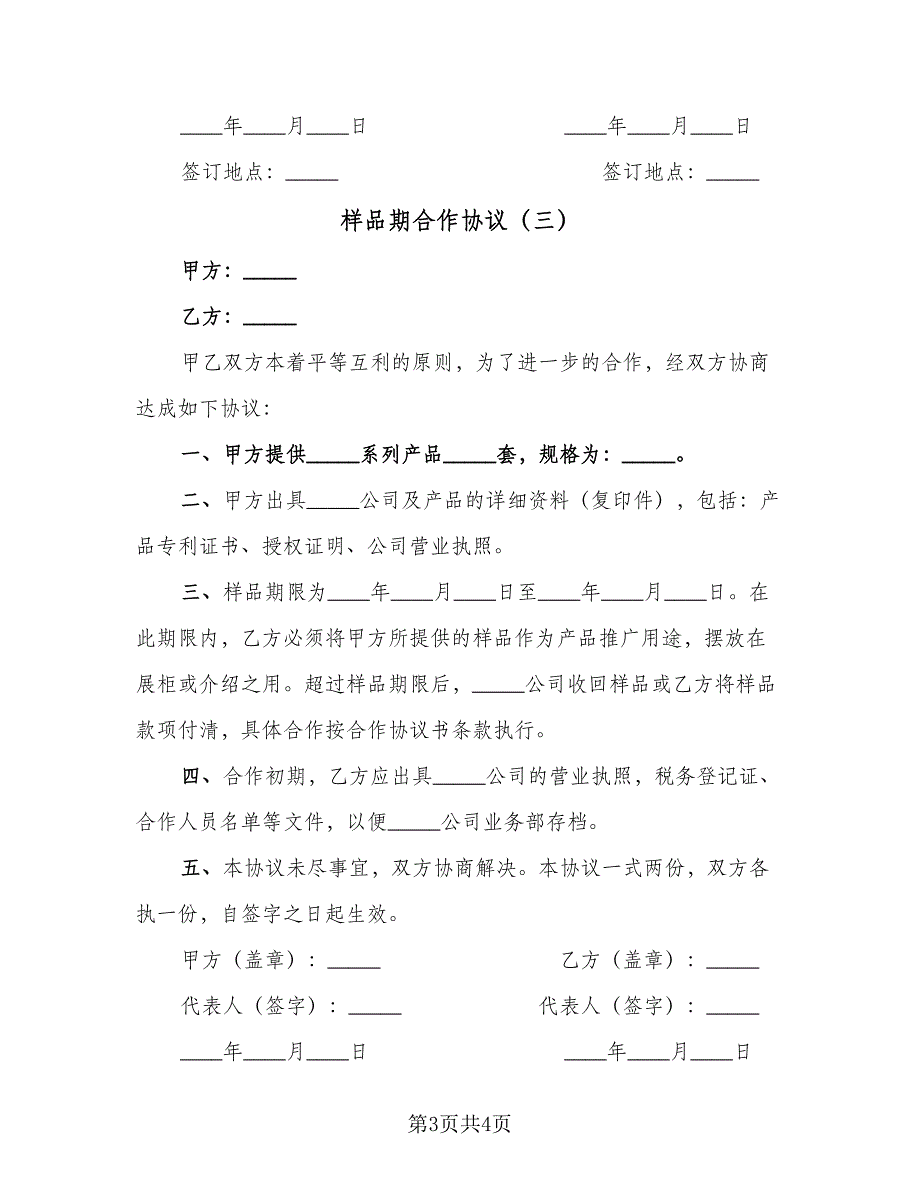 ____年____月____日 ____年____月____日
签订地点：_____ 签订地点：_____
样品期合作协议（三）
甲方：_____
乙方：_____
甲乙双方本着平等互利的原则，为了进一步的合作，经双方协商
达成如下协议：
一、甲方提供_____系列产品_____套，规格为：_____。
二、甲方出具_____公司及产品的详细资料（复印件），包括：产
品专利证书、授权证明、公司营业执照。
三、样品期限为____年____月____日至____年____月____日。在
此期限内，乙方必须将甲方所提供的样品作为产品推广用途，摆放在
展柜或介绍之用。超过样品期限后，_____公司收回样品或乙方将样品
款项付清，具体合作按合作协议书条款执行。
四、合作初期，乙方应出具_____公司的营业执照，税务登记证、
合作人员名单等文件，以便_____公司业务部存档。
五、本协议未尽事宜，双方协商解决。本协议一式两份，双方各
执一份，自签字之日起生效。
甲方（盖章）：_____ 乙方（盖章）：_____
代表人（签字）：_____ 代表人（签字）：_____
____年____月____日 ____年____月____日
第3页共4页